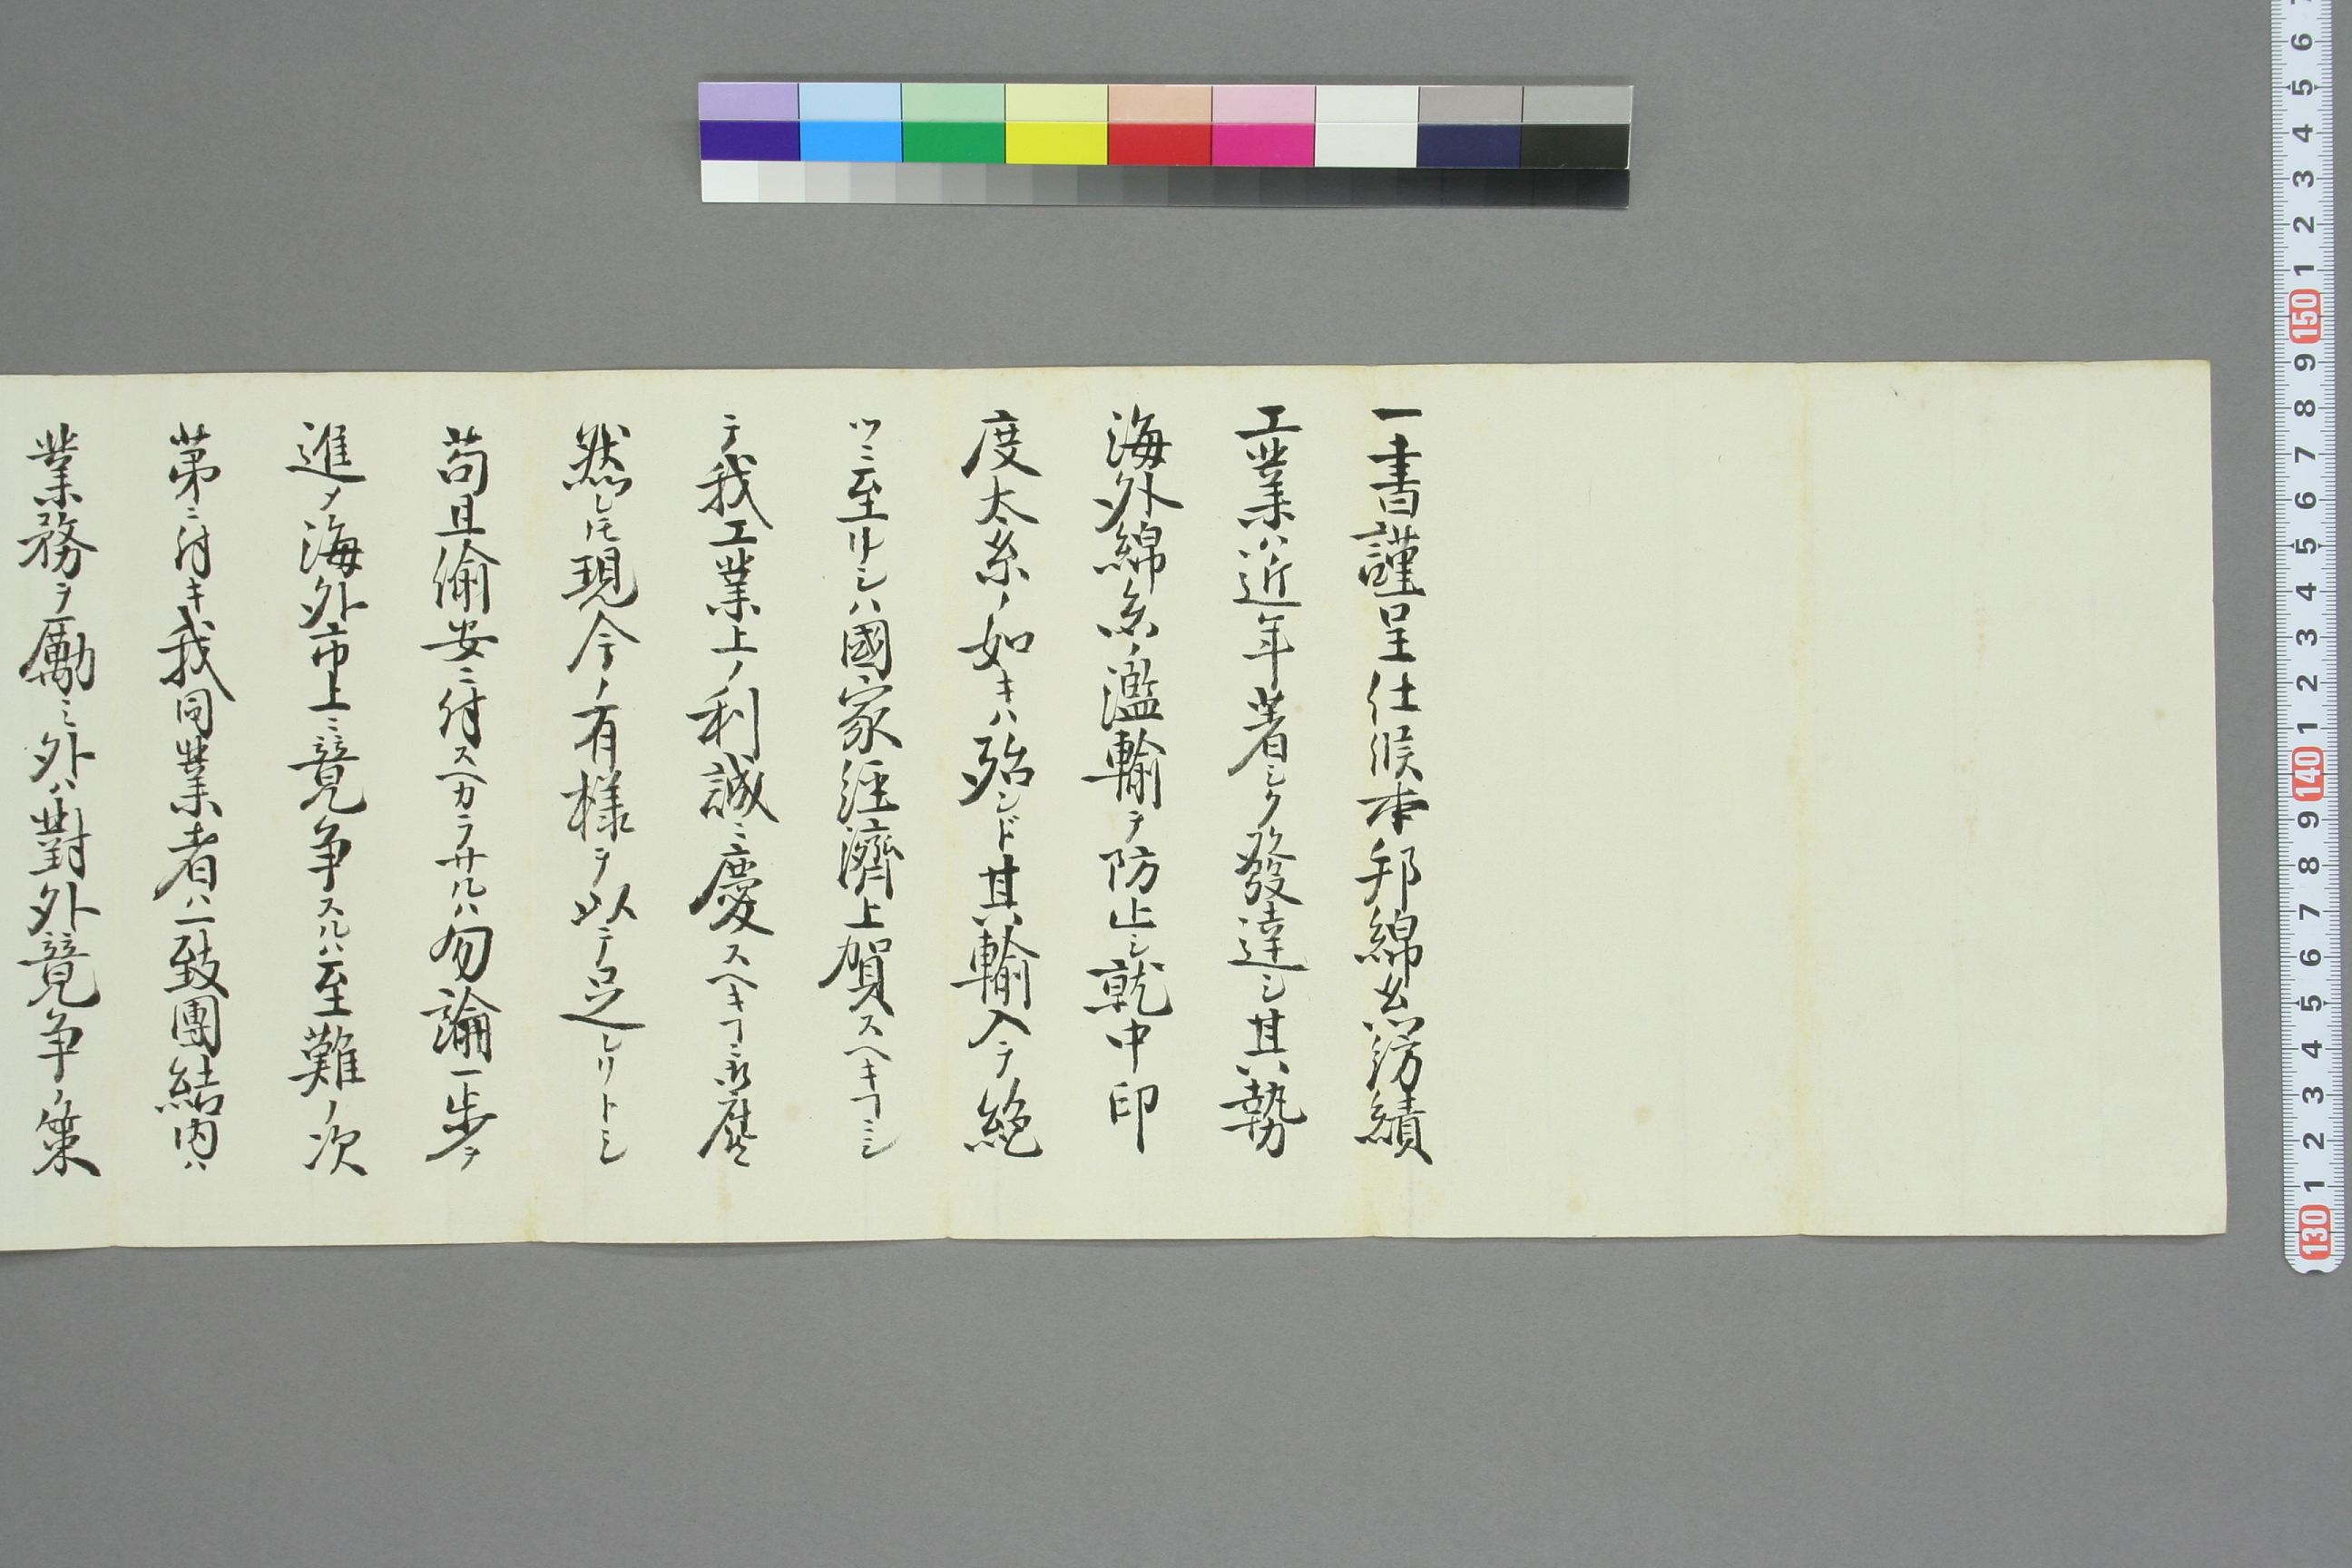 一書謹呈仕候本邦綿糸紡績
工業ハ近年著シク發達シ其勢
海外綿糸ノ濫輸ヲ防止シ就中印
度太糸ノ如キハ殆ンド其輸入ヲ絶
ツニ至リシハ國家経濟上賀スヘキヿニシ
テ我工業上ノ利誠ニ慶スヘキヿ
然レ𪜈現今ノ有様ヲ以テ足レリトシ
苟且偷安ニ付スヘカラサルハ勿論一歩ヲ
進メ海外市上ニ競争スルハ至難ノ次
第ニ付キ我同業者ハ一致團結内ハ
業務ヲ勵ミ外ハ對外競争ノ策
6 5 4 3 2 1 150 9 8 7 6 5 4 3 2 1 140 9 8 7 6 5 4 3 2 1 130